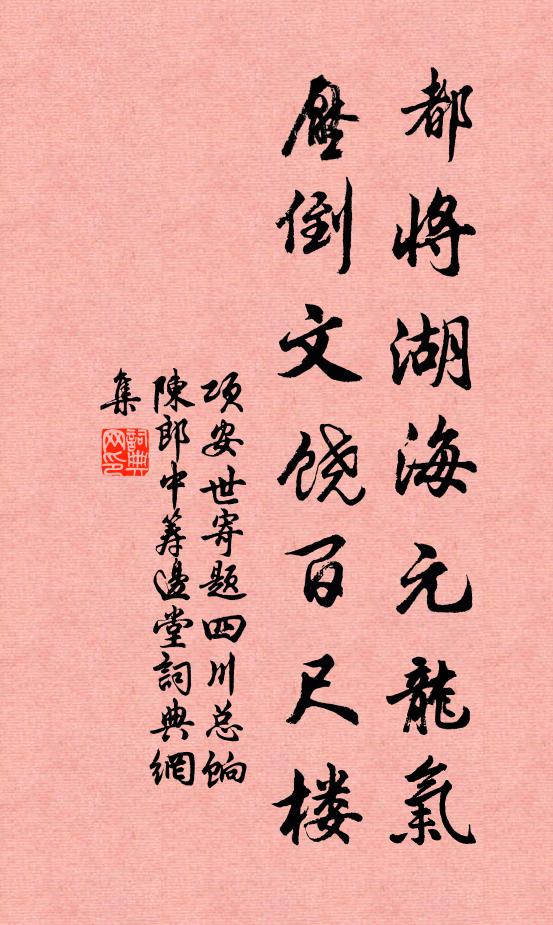 都將湖海元龍氣
壓倒文饶百尺楼
项安世寄题四川总饷
陳郎中籌邊堂詞典網
集
詞典網印